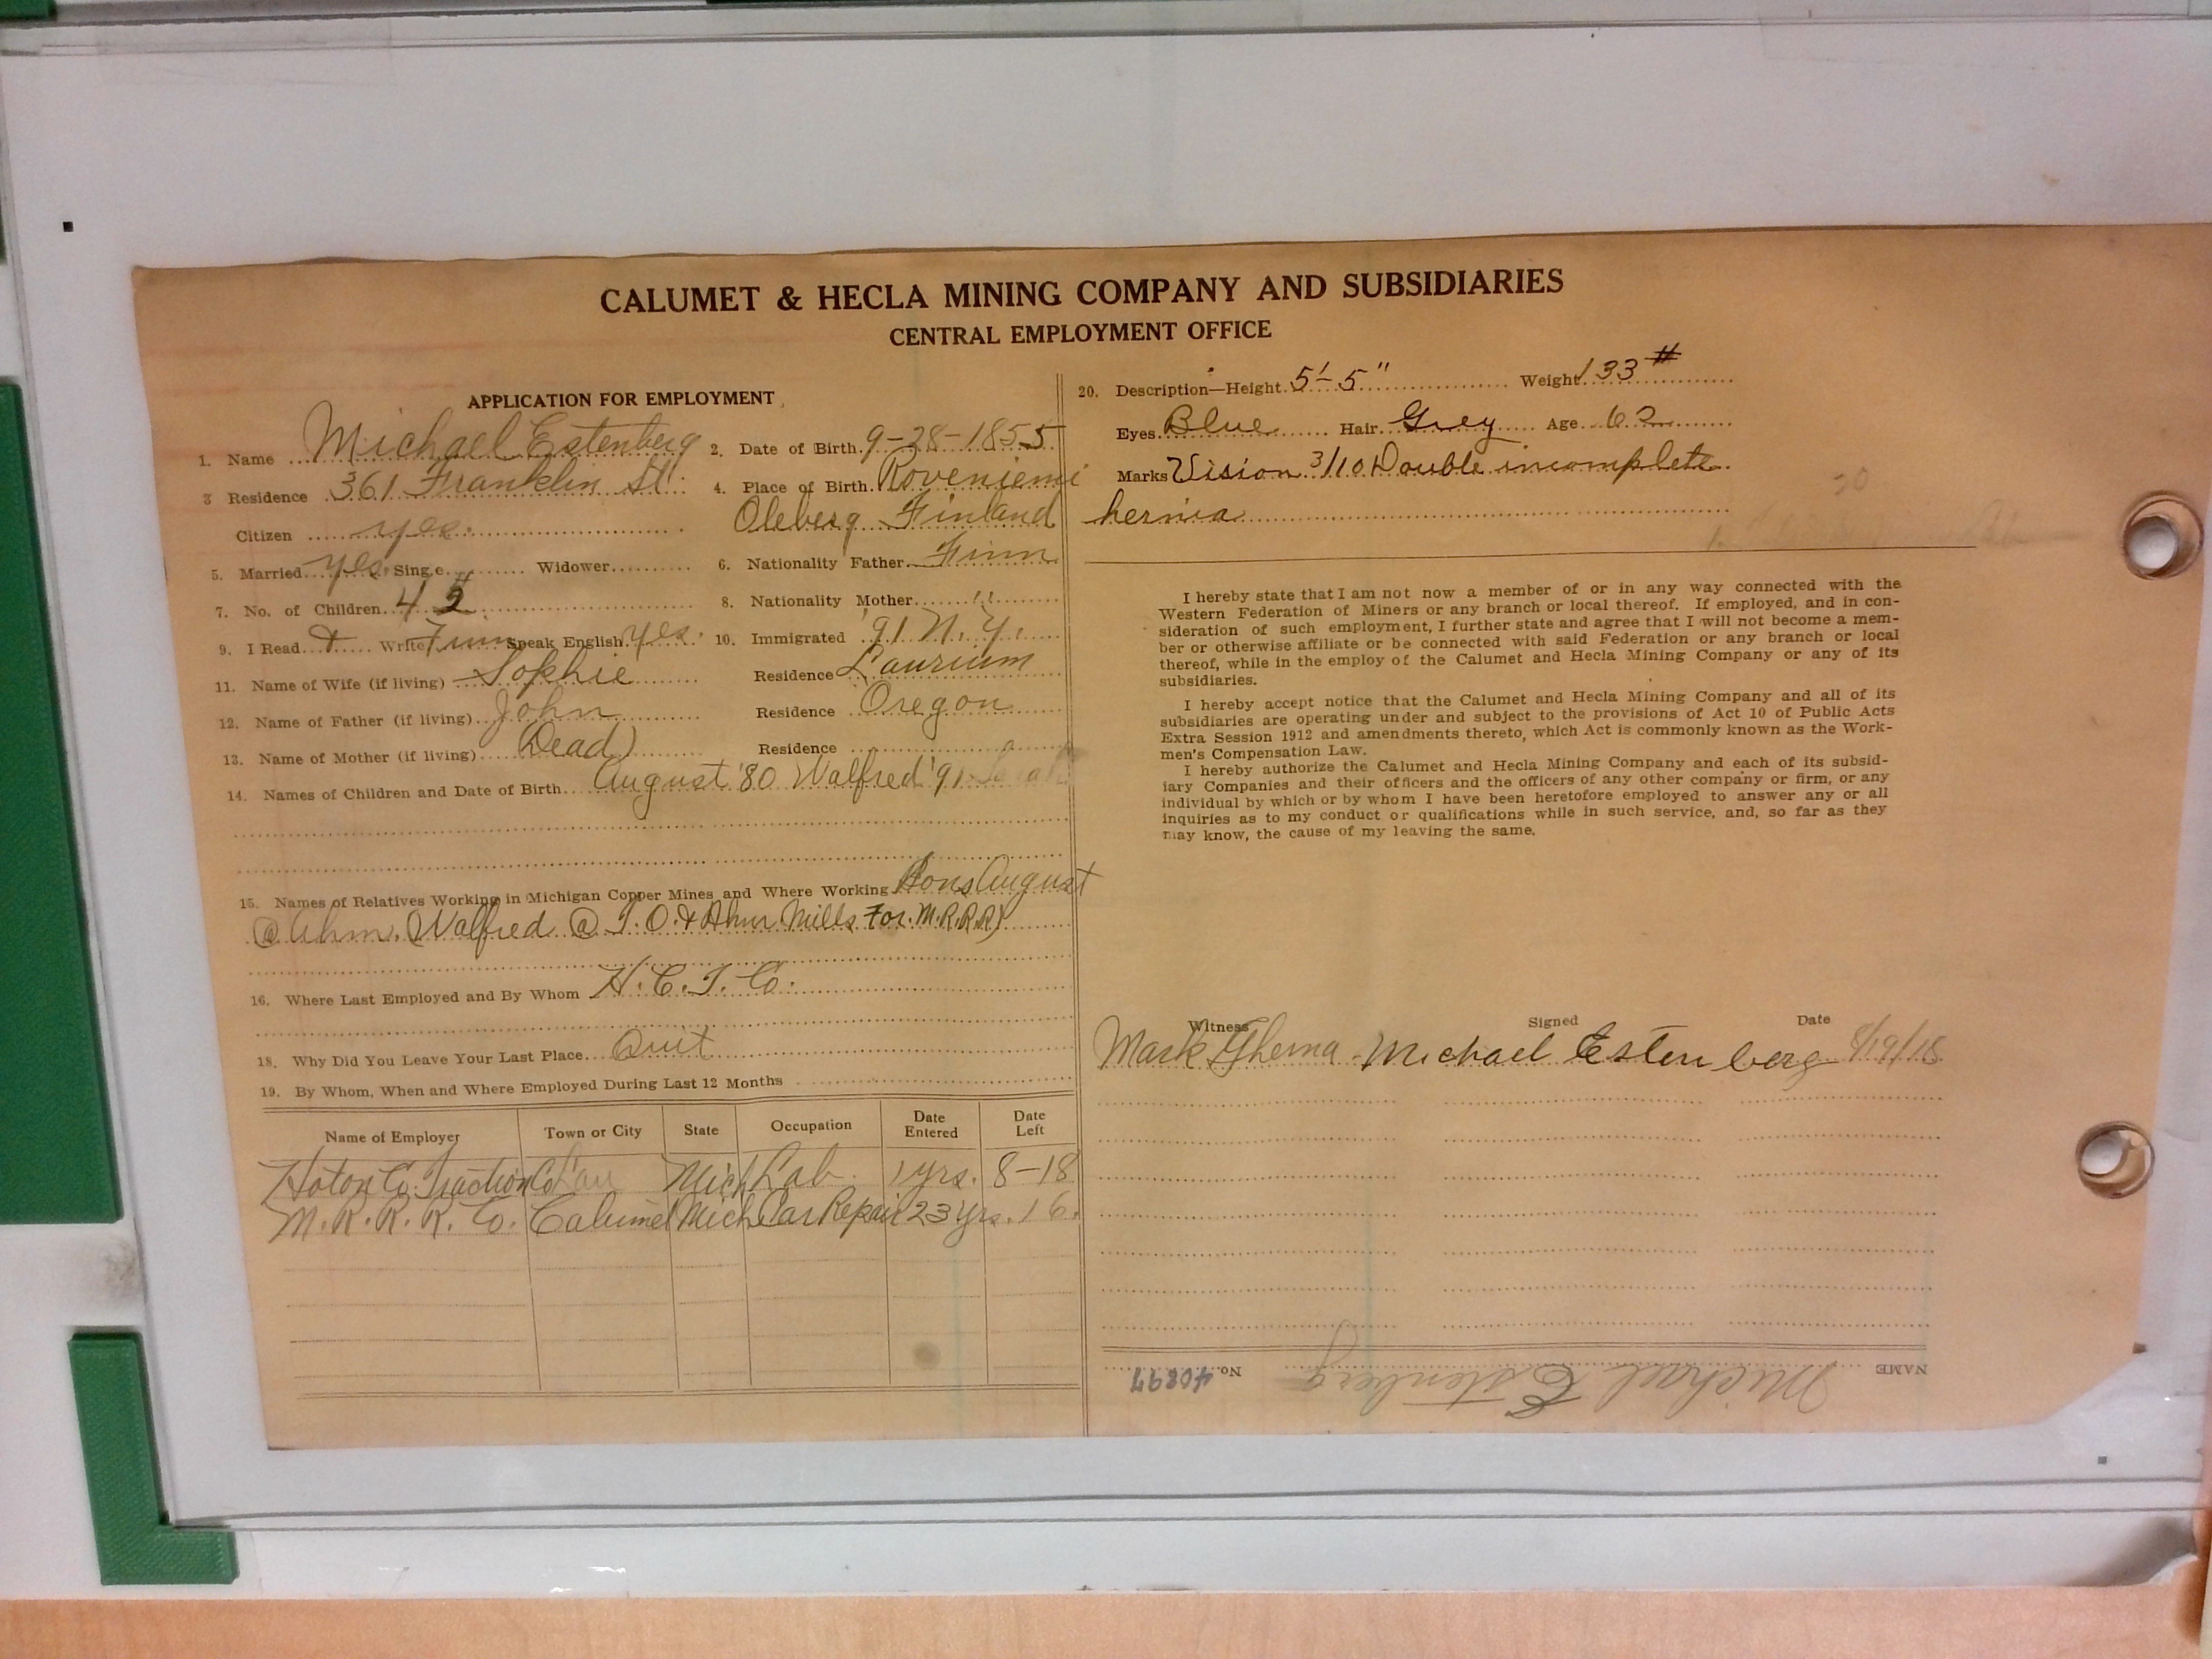 CALUMET & HECLA MINING COMPANY AND SUBSIDIARIES
CENTRAL EMPLOYMENT OFFICE
APPLICATION FOR EMPLOYMENT
1. Name Michael Estenberg 2. Date of Birth 9-28-1855
3 Residence 361 Franklin St. 4. Place of Birth Roveniemi
Citizen yes. Oleberg Finland
5. Married yes Single Widower 6. Nationality Father Finn
7. No. of Children 4 8. Nationality Mother "
9. I Read & Write Finn Speak English yes. 10. Immigrated '91 N.Y.
11. Name of Wife (if living) Sophie Residence Laurium
12. Name of Father (if living) John Residence Oregon
13. Name of Mother (if living) (Dead) Residence
14. Names of Children and Date of Birth August '80 Walfred '91
15. Names of Relatives Working in Michigan Copper Mines and Where Working Sons August
@ Ahm. (Walfred @ T.O. & Ahm. Mills For. M.R.R.R)
16. Where Last Employed and By Whom H.C.T. Co.
18. Why Did You Leave Your Last Place Quit
19. By Whom, When and Where Employed During Last 12 Months
Name of Employer Town or City State Occupation Date Entered Date Left
Hoton Co. Traction Co Lau Mich Lab. 1 yrs. 8-18
M.R.R.R. Co. Calumet Mich Car Repair 23 yrs. 16.
20. Description—Height 5'-5" Weight 133#
Eyes Blue Hair Grey Age 62
Marks Vision 3/10 Double incomplete
hernia
I hereby state that I am not now a member of or in any way connected with the
Western Federation of Miners or any branch or local thereof. If employed, and in con-
sideration of such employment, I further state and agree that I will not become a mem-
ber or otherwise affiliate or be connected with said Federation or any branch or local
thereof, while in the employ of the Calumet and Hecla Mining Company or any of its
subsidiaries.
I hereby accept notice that the Calumet and Hecla Mining Company and all of its
subsidiaries are operating under and subject to the provisions of Act 10 of Public Acts
Extra Session 1912 and amendments thereto, which Act is commonly known as the Work-
men's Compensation Law.
I hereby authorize the Calumet and Hecla Mining Company and each of its subsid-
iary Companies and their officers and the officers of any other company or firm, or any
individual by which or by whom I have been heretofore employed to answer any or all
inquiries as to my conduct or qualifications while in such service, and, so far as they
may know, the cause of my leaving the same.
Witness Signed Date
Mark Michael Estenberg 8/19/18
NAME Michael Estenberg No. 40897